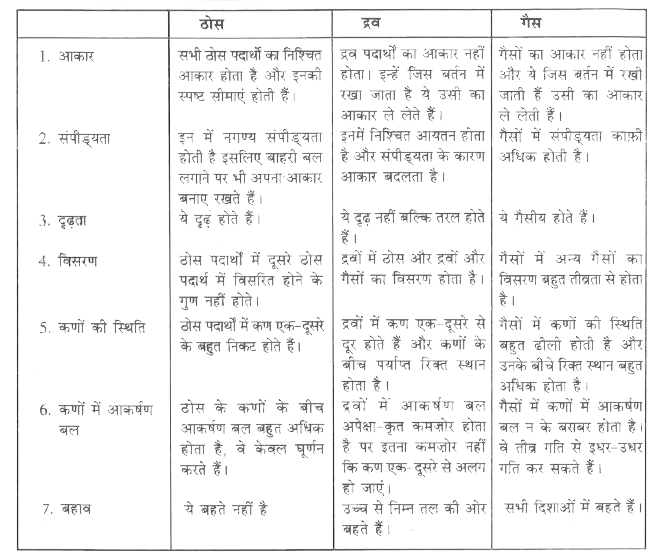 ठोस द्रव गैस
1. आकार
सभी ठोस पदार्थों का निश्चित
आकार होता है और इनकी
स्पष्ट सीमाएं होती हैं।
द्रव पदार्थों का आकार नहीं
होता। इन्हें जिस बर्तन में
रखा जाता है ये उसी का
आकार ले लेते हैं।
गैसों का आकार नहीं होता
और ये जिस बर्तन में रखी
जाती हैं उसी का आकार
ले लेती हैं।
2. संपीड्यता
इन में नगण्य संपीड्यता
होती है इसलिए बाहरी बल
लगाने पर भी अपना आकार
बनाए रखते हैं।
इनमें निश्चित आयतन होता
है और संपीड्यता के कारण
आकार बदलता है।
गैसों में संपीड्यता काफ़ी
अधिक होती है।
3. दृढ़ता
ये दृढ़ होते हैं।
ये दृढ़ नहीं बल्कि तरल होते
हैं।
ये गैसीय होते हैं।
4. विसरण
ठोस पदार्थों में दूसरे ठोस
पदार्थ में विसरित होने के
गुण नहीं होते।
द्रवों में ठोस और द्रवों और
गैसों का विसरण होता है।
गैसों में अन्य गैसों का
विसरण बहुत तीव्रता से होता
है।
5. कणों की स्थिति
ठोस पदार्थों में कण एक-दूसरे
के बहुत निकट होते हैं।
द्रवों में कण एक-दूसरे से
दूर होते हैं और कणों के
बीच पर्याप्त रिक्त स्थान
होता है।
गैसों में कणों की स्थिति
बहुत ढीली होती है और
उनके बीचे रिक्त स्थान बहुत
अधिक होता है।
6. कणों में आकर्षण
बल
ठोस के कणों के बीच
आकर्षण बल बहुत अधिक
होता है, वे केवल घूर्णन
करते हैं।
द्रवों में आकर्षण बल
अपेक्षा-कृत कमज़ोर होता
है पर इतना कमज़ोर नहीं
कि कण एक-दूसरे से अलग
हो जाएं।
गैसों में कणों में आकर्षण
बल न के बराबर होता है।
वे तीव्र गति से इधर-उधर
गति कर सकते हैं।
7. बहाव
ये बहते नहीं है
उच्च से निम्न तल की ओर
बहते हैं।
सभी दिशाओं में बहते हैं।